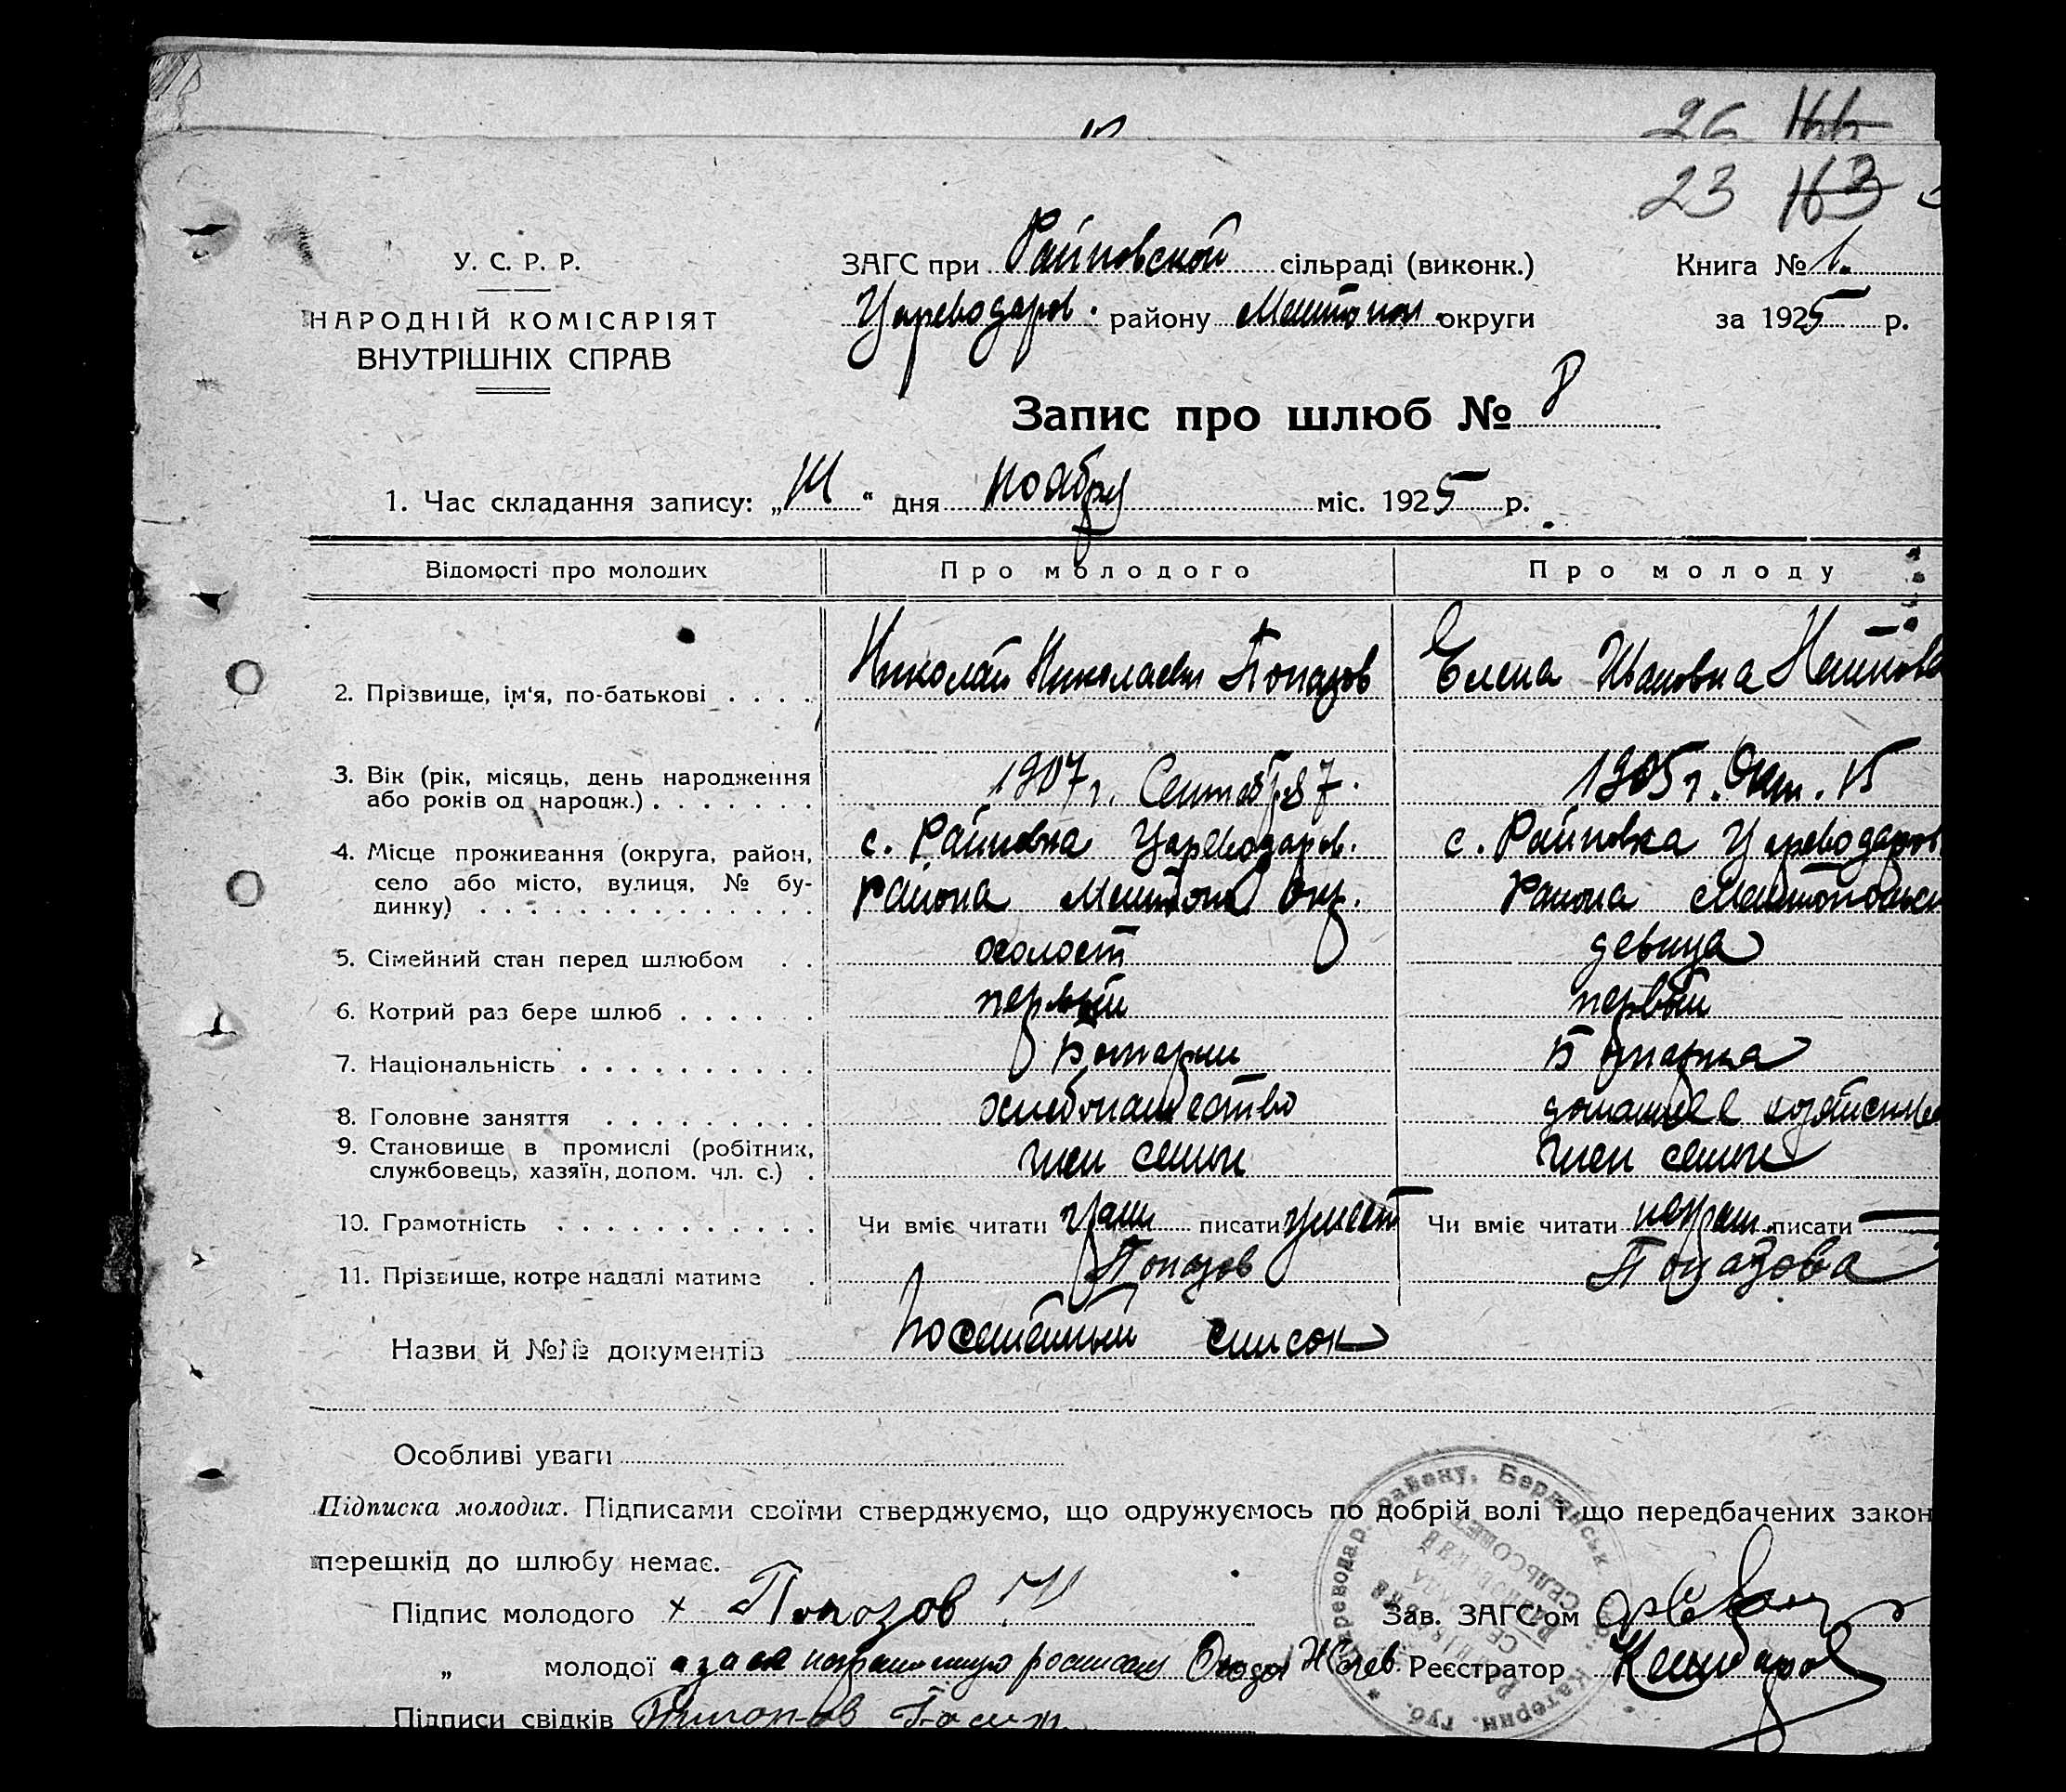 26 166
23 163
У. С. Р. Р.
НАРОДНІЙ КОМІСАРІЯТ
ВНУТРІШНІХ СПРАВ
ЗАГС при Райновской сільраді (виконк.)
Цареводаров. району Мелитопол. округи
Книга № 1.
за 1925 р.
Запис про шлюб № 8
1. Час складання запису: „ “ дня ноября міс. 1925 р.
Відомості про молодих Про молодого Про молоду
2. Прізвище, ім‘я, по-батькові . . . . Николай Николаевич Попазов Елена Ивановна
3. Вік (рік, місяць, день народження 1907 г. Сентября 7. 1905 г. Окт. 15
або років од народж.) . . . . . . .
4. Місце проживання (округа, район, с. Райновка Цареводаров. с. Райновка Цареводаров
село або місто, вулиця, № бу-
динку) . . . . . . . . . . . . . района Мелитоп. Окр. района Мелитопольск
5. Сімейний стан перед шлюбом . . холост девица
6. Котрий раз бере шлюб . . . . . . первый первый
7. Національність . . . . . . . . . . Болгарин Болгарка
8. Головне заняття . . . . . . . . . хлебопашество домашнее
9. Становище в промислі (робітник, член семьи член семьи
службовець, хазяїн, допом. чл. с.) .
10. Грамотність . . . . . . . . . . . Чи вміє читати грам писати умеет Чи вміє читати неграм. писати —
11. Прізвище, котре надалі матиме . Попазов Попазова
Назви й №№ документів Посемейный список
Особливі уваги
Підписка молодих. Підписами своїми стверджуємо, що одружуємось по добрій волі і що передбачених закон
перешкід до шлюбу немає.
Підпис молодого × Попозов Н Зав. ЗАГС'ом
„ молодої а за ея неграмотную Реєстратор
Підписи свідків
Цареводар. району, Бердянськ. Катерин. губ.